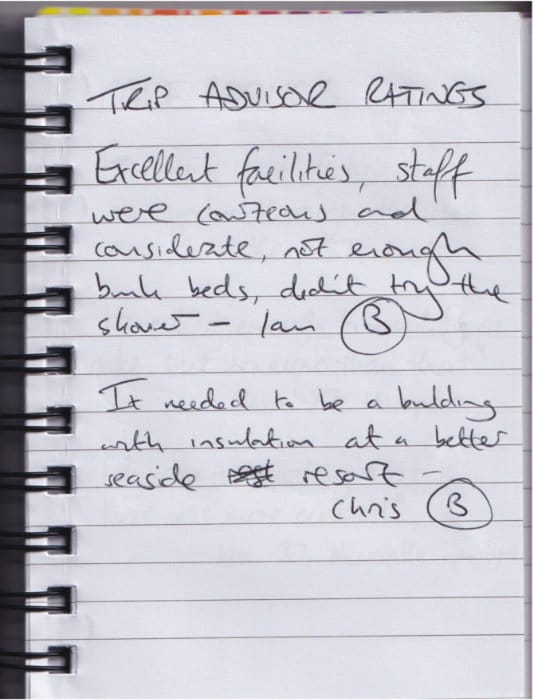 TRIP ADVISOR RATINGS
Excellent facilities, staff
were courteous and
considerate, not enough
bunk beds, didn't try the
shower - Ian B
It needed to be a building
with insulation at a better
seaside resort -
Chris B